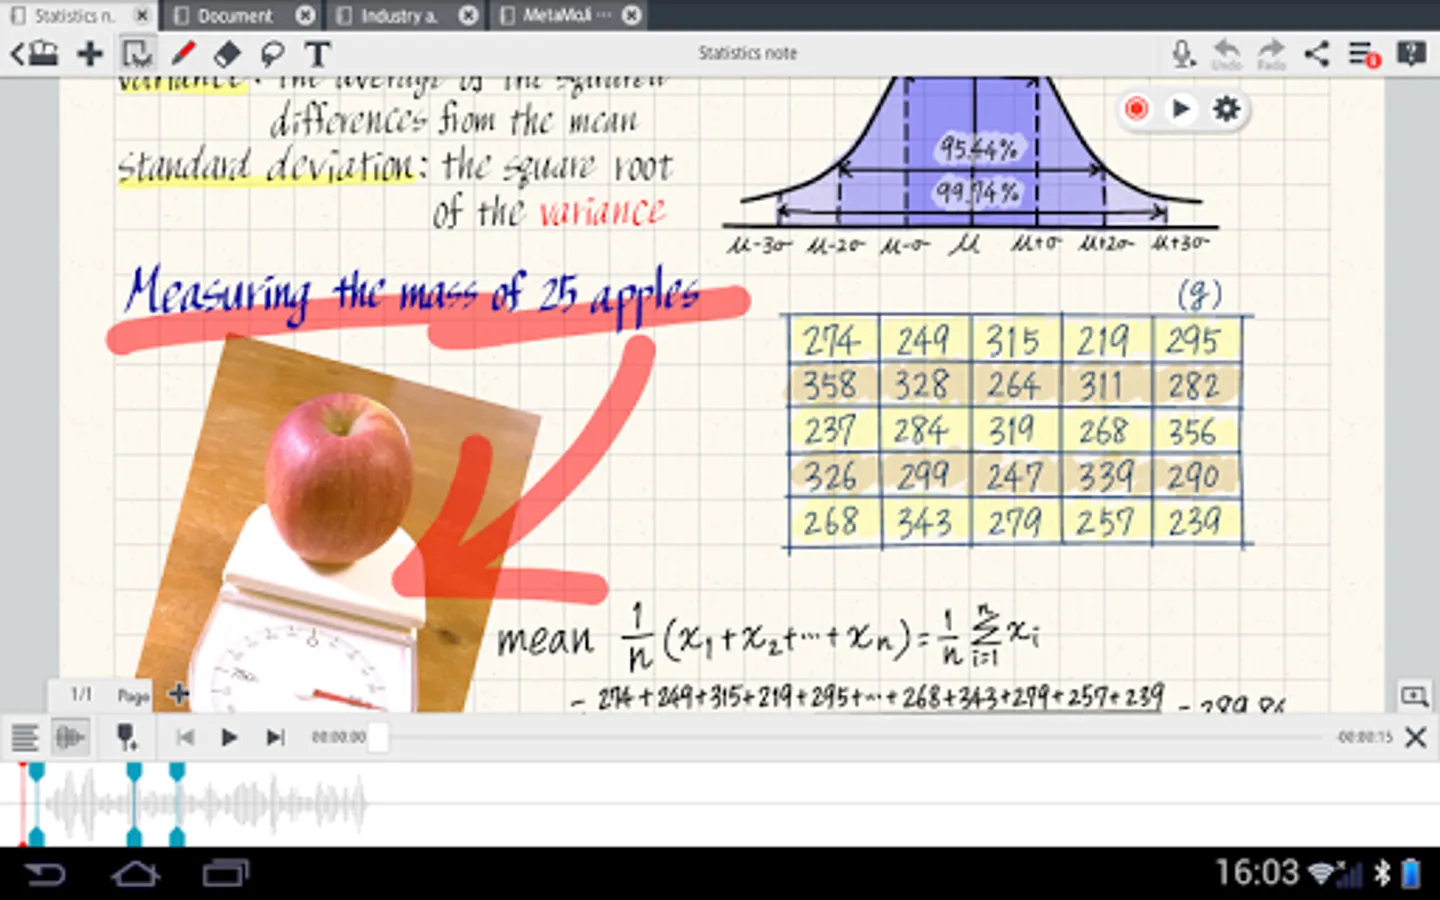 Statistics n.
Document
Industry a.
MetaMoJi ...
T
Statistics note
Undo
Redo
variance: the average of the squared
differences from the mean
standard deviation: the square root
of the variance
95.44%
99.74%
μ-3σ μ-2σ μ-σ μ μ+σ μ+2σ μ+3σ
Measuring the mass of 25 apples
(g)
274 249 315 219 295
358 328 264 311 282
237 284 319 268 356
326 299 247 339 290
268 343 279 257 239
0
mean 1/n (x₁+x₂+...+xₙ) = 1/n Σ i=1 n xᵢ
= 274+249+315+219+295+...+268+343+279+257+239 = 289.84
1/1 Page
00:00:00
-00:00:15
16:03